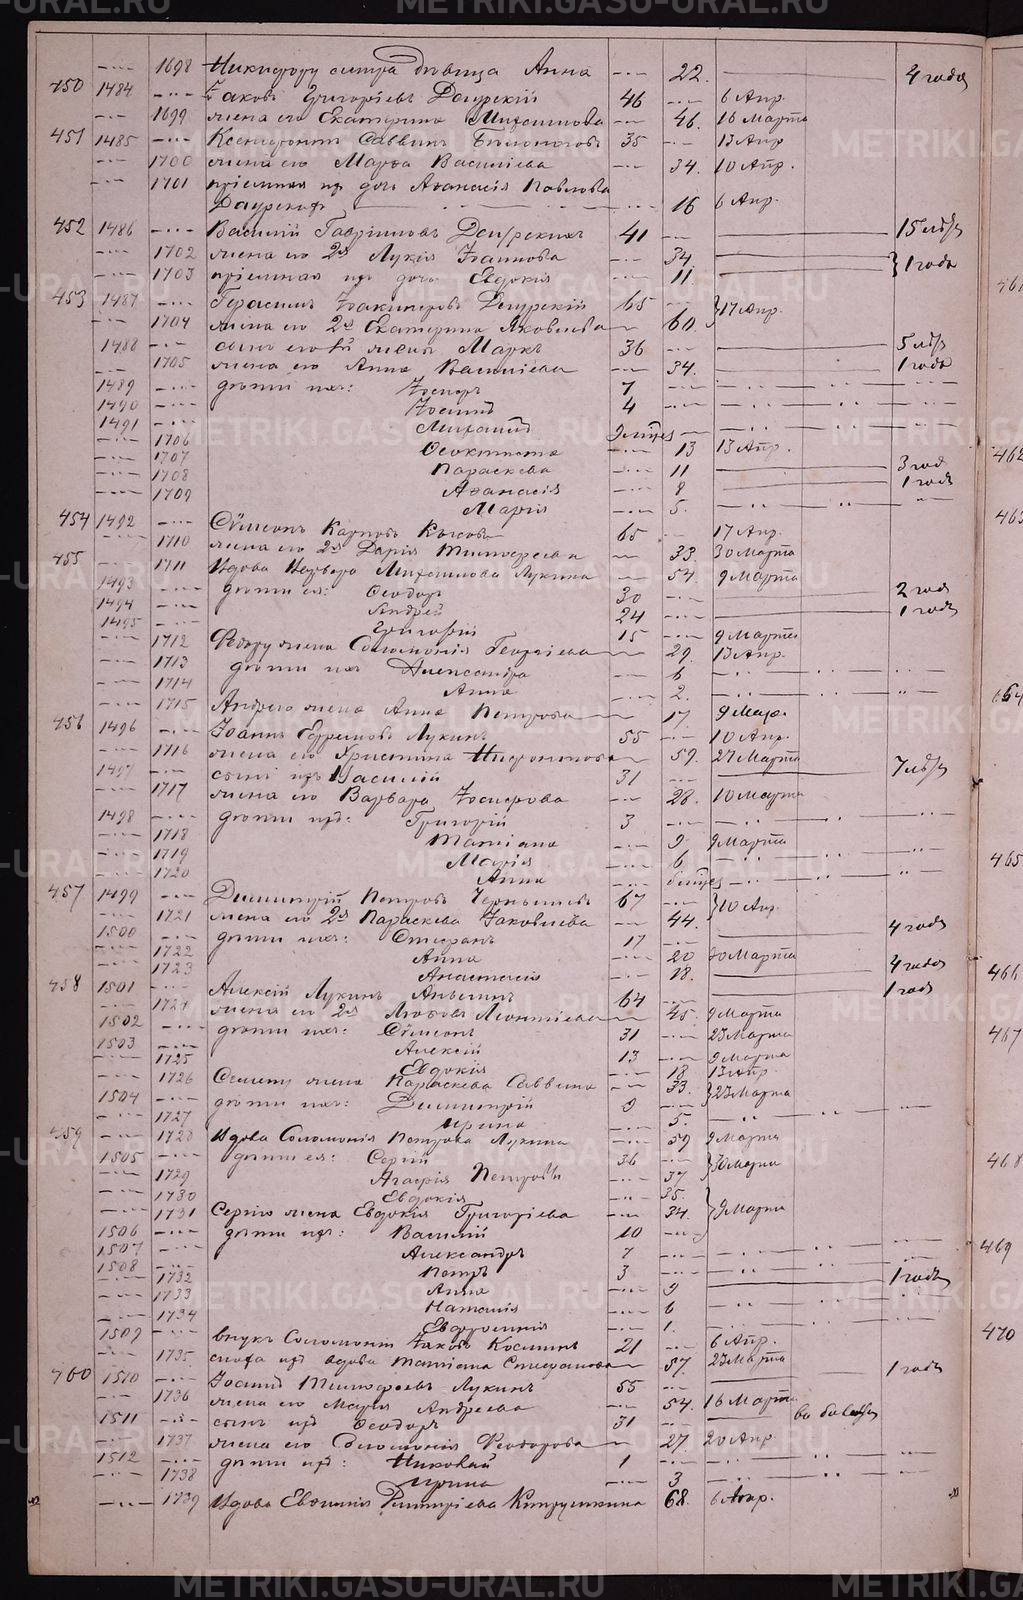 METRIKI.GASO-URAL.RU
1698 сестра дѣвица Анна 22. 4 года
450 1484 Яковъ Григоріевъ Даурскій 46 6 Апр.
1699 жена его Екатерина Михаилова 46. 16 Марта
451 1485 Саввинъ 35 13 Апр
1700 жена его Марѳа Василіева 34. 10 Апр.
1701 пріемная ихъ дочь Аѳанасія Павлова
16 6 Апр.
452 1486 Василій Гавріиловъ 41 15 лѣтъ
1702 жена его 2я Лукія Іоаннова 34 1 года
1703 пріемная ихъ дочь Евдокія 11
453 1487 Герасимъ Даурскій 65 17 Апр.
1704 жена его 2я Екатерина Яковлева 60
1488 сынъ его жены Маркъ 36 5 лѣтъ
1705 жена его Анна Василіева 34. 1 года
1489 дѣти ихъ: 7
1490 Іосифъ 4
1491 Михаилъ
1706 Ѳеоктиста 13 13 Апр.
1707 Параскева 11 3 год
1708 Аѳанасія 8 1 годъ
1709 Марія 5.
454 1492 Сѵмеонъ Карповъ 65 17 Апр.
1710 жена его 2я Дарія Тимоѳеева 33. 30 Марта
455 1711 Вдова Варвара Михаилова Лукина 54. 9 Марта
1493 дѣти ея: Ѳеодоръ 30 2 года
1494 Андрей 24 1 годъ
1495 Григорій 15 9 Марта
1712 Ѳедору жена Соломонія Георгіева 29. 13 Апр.
1713 дѣти ихъ Александра 6
1714 Анна 2.
1715 Андрею жена Анна Петрова 17. 9 Мар.
456 1496 Іоаннъ Ефремовъ Лукинъ 55 10 Апр.
1716 жена его Христина 59. 27 Марта
1497 сынъ ихъ Василій 31 7 лѣтъ
1717 жена его Варвара Іосифова 28. 10 Марта
1498 дѣти ихъ: Григорій 3
1718 Татіана 9 9 Марта
1719 Марія 6
1720 Анна
457 1499 Димитрій Петровъ Чернышевъ 67 10 Апр.
1721 жена его 2я Параскева Іаковлева 44.
1500 дѣти ихъ: Стефанъ 17 4 года
1722 Анна 20 30 Марта
1723 Анастасія 18. 4 года
458 1501 Алексій Лукинъ 64 1 годъ
1724 жена его 2я Любовь Леонтіева 45. 9 Марта
1502 дѣти ихъ: Сѵмеонъ 31 23 Марта
1503 Алексій 13 9 Марта
1725 Евдокія 18 13 Апр.
1726 Семену жена Параскева Саввина 33. 23 Марта
1504 дѣти ихъ: Димитрій 9
1727 Ирина 5.
459 1728 Вдова Соломонія Петрова Лукина 59 9 Марта
1505 дѣти ея: Сергій 36 30 Марта
1729 Агафія Петровы 37
1730 Евдокія 35.
1731 Сергію жена Евдокія Григоріева 34. 9 Марта
1506 дѣти ихъ: Василій 10
1507 Александръ 7
1508 Петръ 3 1 годъ
1732 Анна 9
1733 Наталія 6
1734 Евфросинія 1.
1509 внукъ Соломоніи Іаковъ 21 6 Апр.
1735 сноха ихъ вдова Татіана Стефанова 57. 23 Марта
460 1510 Іосифъ Тимоѳеевъ Лукинъ 55 1 годъ
1736 жена его Марія Андреева 54. 16 Марта
1511 сынъ ихъ Ѳеодоръ 31
1737 жена его Соломонія Ѳеодорова 27. 20 Апр.
1512 дѣти ихъ: Николай 1
1738 Ирина 3
1739 Вдова Евѳимія Димитріева 68. 6 Апр.
461
462
463
464
465
466
467
468
469
470